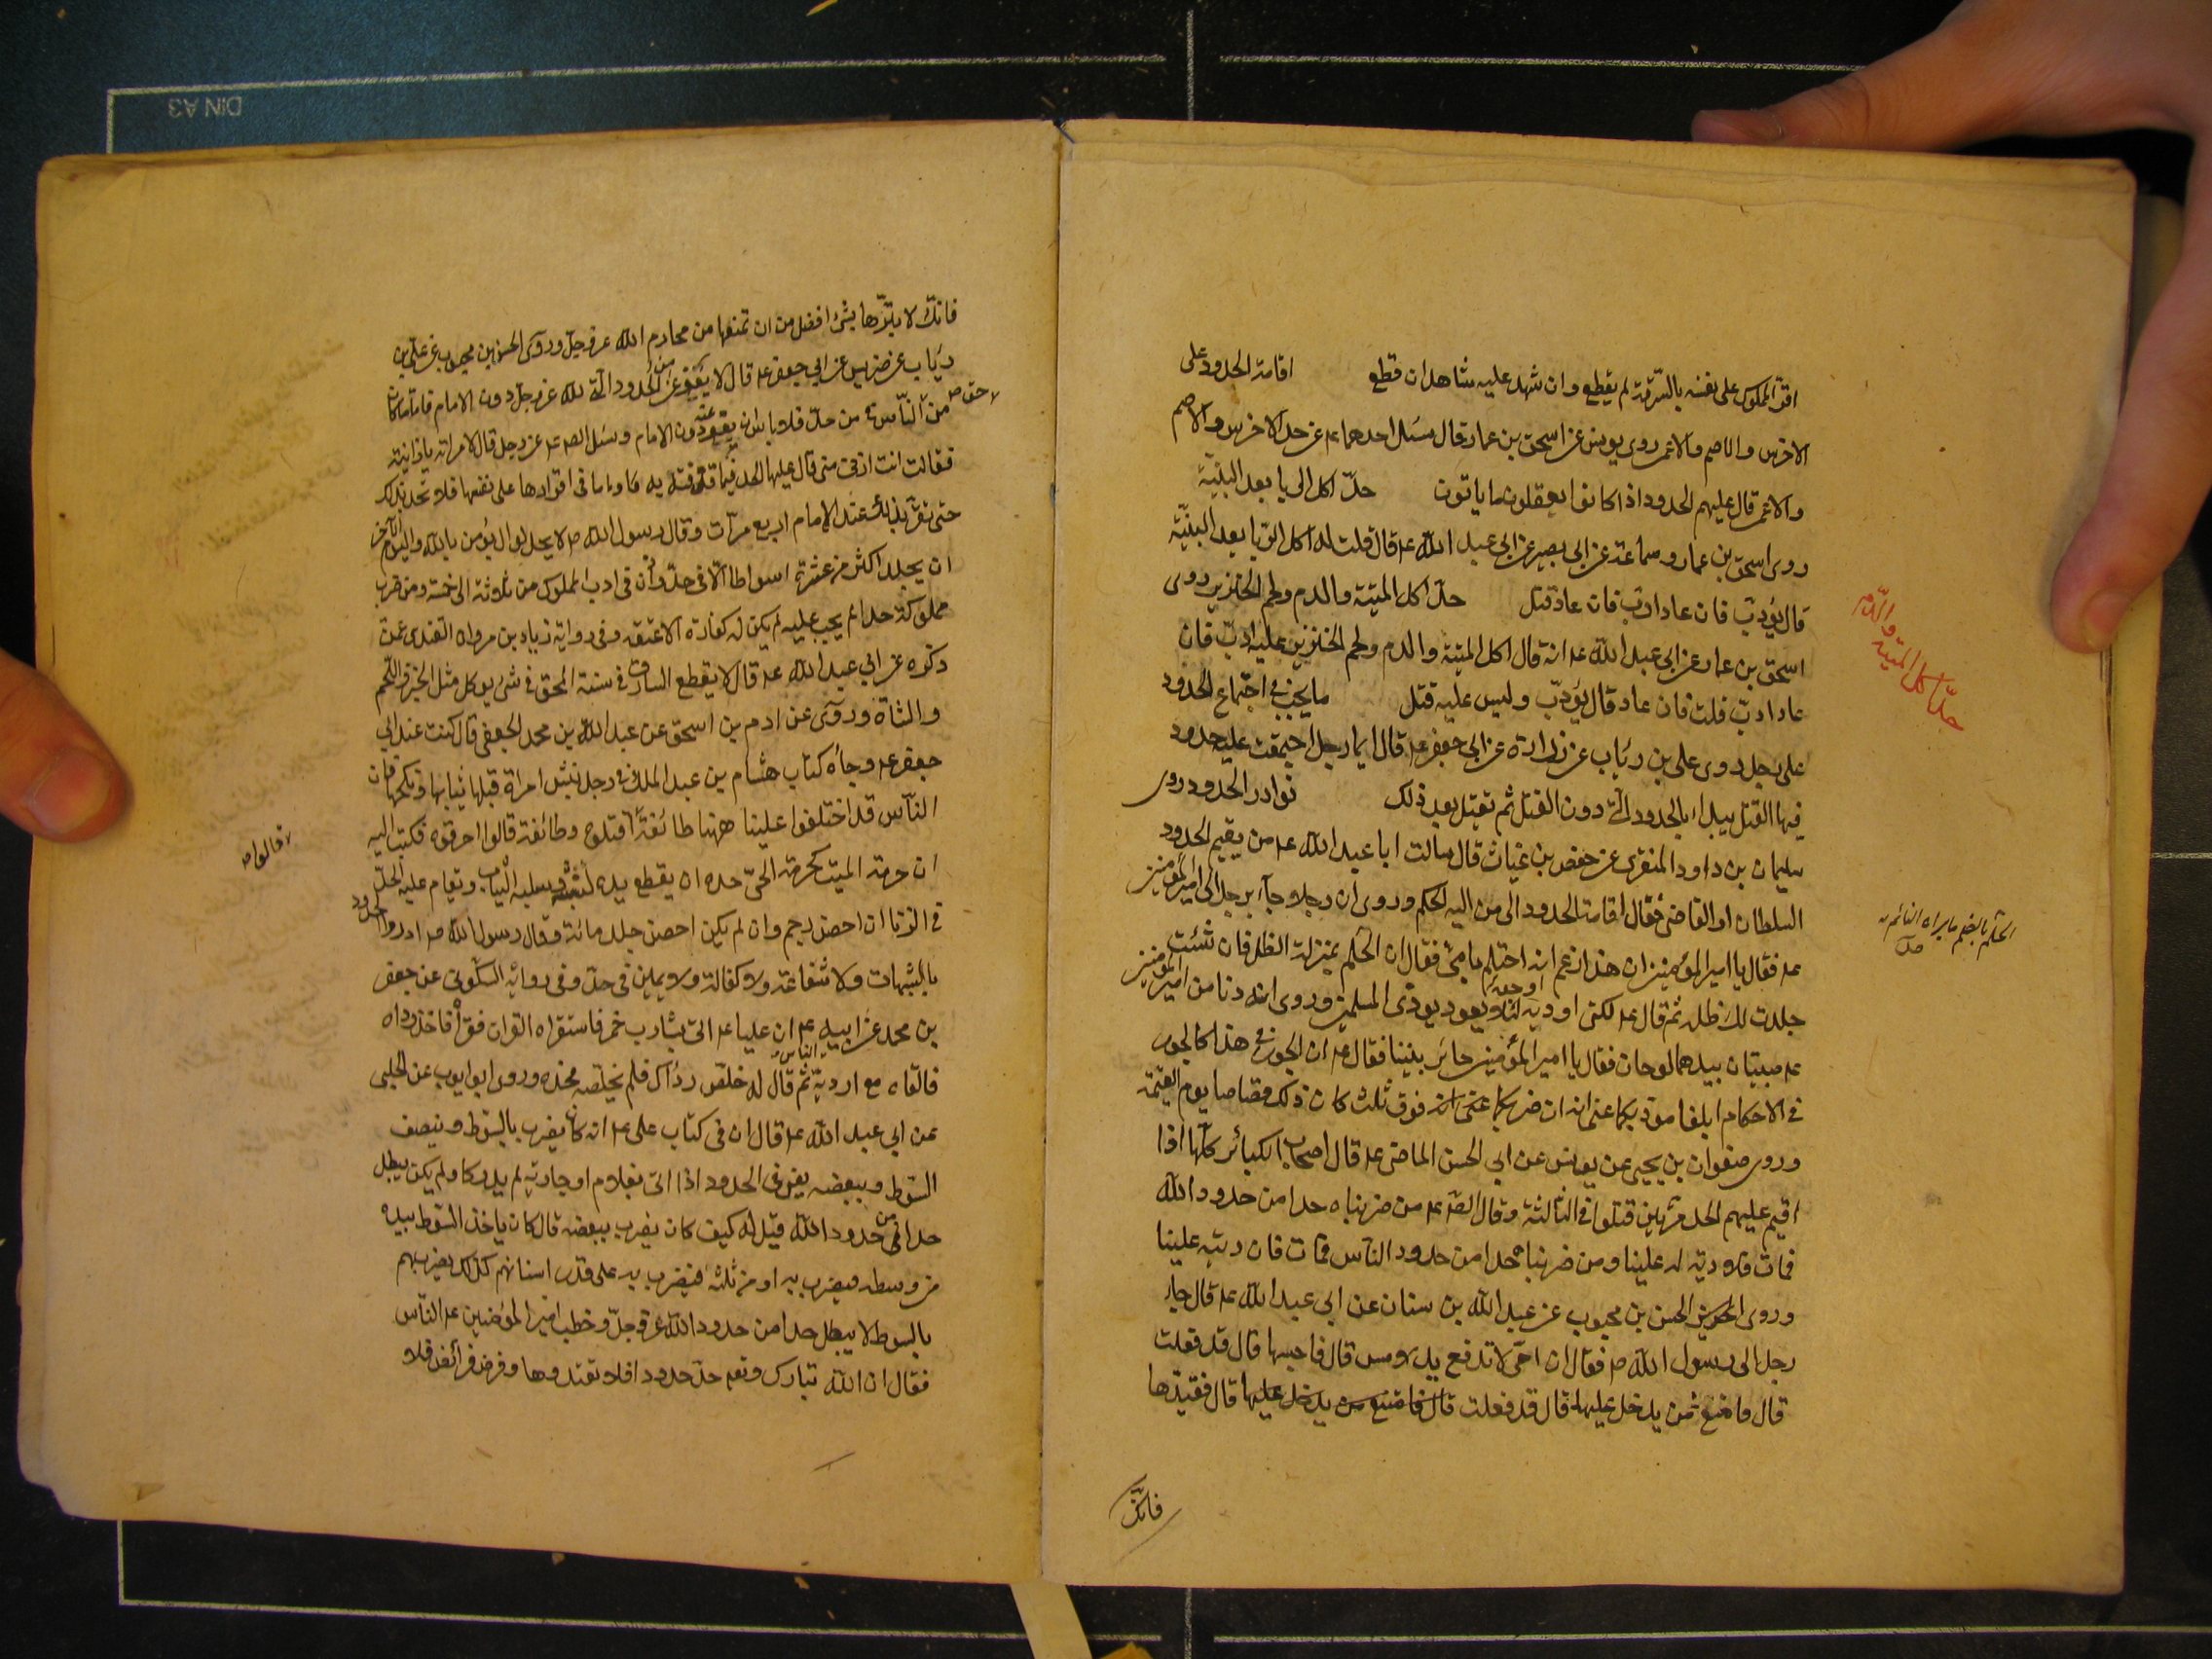 اقرّ المملوك على نفسه بالسّرقة لم يقطع وان شهد عليه شاهدان قطع اقامة الحدود على
الاخرس والاصم والاعمى روى يونس عن اسحق بن عمار قال سئل احدهما عه عن حد الاخرس والاصم
والاعمى قال عليهم الحدود اذا كانوا يعقلون ما ياتون حدّ اكل الربا بعد البنيّة
روى اسحق بن عمار وسماعة عن ابى بصير عن ابى عبد الله عه قال قلت له اكل الربا بعد البنيّة
قال يؤدب فان عاد ادّب فان عاد قتل حدّ اكل الميتة والدم ولحم الخنزير روى
اسحق بن عمار عن ابى عبد الله عه انه قال اكل الميتة والدم ولحم الخنزير عليه ادب فان
عاد ادبّ قلت فان عاد قال يؤدّب وليس عليه قتل ما يجب فى اجتماع الحدود
على رجل روى على بن رئاب عن زرارة عن ابى جعفر عه قال ايما رجل اجتمعت عليه حدود
فيها القتل يبدا بالحدود الّتى دون القتل ثم يقتل بعد ذلك نوادر الحدود روى
سليمان بن داود المنقرى عن حفص بن غياث قال سالت ابا عبد الله عه من يقيم الحدود
السلطان او القاضى فقال اقامة الحدود الى من اليه الحكم وروى ان رجلا جآء برجل الى امير المؤمنين
عه فقال يا امير المؤمنين ان هذا زعم انه احتلم بامى فقال ان الحلم بمنزلة الظل فان شئت
جلدت لك ظله ثم قال عه لكنى اوجعه لئلا يعود يوذى المسلمين وروى انه دنا من امير المؤمنين
عه صبيان بيدهما لوحان فقال يا امير المؤمنين خاير بيننا فقال عه ان الجور فى هذا كالجور
فى الاحكام ابلغا مودبكما عنى انه ان ضربكما فوق ثلث كان ذلك قصاصا يوم القيمة
وروى صفوان بن يحيى عن يونس عن ابى الحسن الماضى عه قال اصحاب الكبائر كلّها اذا
اقيم عليهم الحد مرّتين قتلوا فى الثالثة وقال الصّ عه من ضربناه حدا من حدود الله
فمات فلا دية له علينا ومن ضربناه حدا من حدود الناس فمات فان ديته علينا
وروى الحسن بن محبوب عن عبد الله بن سنان عن ابى عبد الله عه قال جاء
رجل الى رسول الله صه فقال ان امّى لا تدفع يد لامس قال فاحبسها قال قد فعلت
قال فامنع من يدخل عليها قال قد فعلت قال فامنع من يدخل عليها قال فقيدّها
فانّك
حدّ اكل الميتة والدّم
الحلم بالضم ما يراه النائم
فانّك لا تبرّها بشئ افضل من ان تمنعها من محارم الله عز وجل وروى الحسن بن محبوب عن على بن
رئاب عن ضريس عن ابى جعفر عه قال لا يعفى عن الحدود الّتى لله عز وجل دون الامام فاما ما كان
من حق الناس فى حدّ فلا باس ان يعفى عنه دون الامام وسئل الصه عه عن رجل قال لامراته يا زانية
فقالت انت ازنى منى قال عليها الحد فيما قذفته به واما فى اقرارها على نفسها فلا تحد بذلك
حتى تقر بذلك عند الامام اربع مرّات وقال رسول الله صه لا يحل لوال يؤمن بالله واليوم الآخر
ان يجلد اكثر من عشرة اسواط الّا فى حدّ واذن فى ادب المملوك من ثلاثة الى خمسة ومن ضرب
مملوكه حدا لم يجب عليه لم يكن له كفارة الا عتقه وفى رواية زياد بن مروان القندى عمّن
ذكره عن ابى عبد الله عه قال لا يقطع السارق فى سنة المحق فى شئ يوكل مثل الخبز واللّحم
والقثاء وروى عن ادم بن اسحق عن عبد الله بن محمد الجعفى قال كنت عند ابى
جعفر عه وجاءه كتاب هشام بن عبد الملك فى رجل نبش امراة فسلبها ثيابها ونكحها فان
الناس قد اختلفوا علينا ههنا طائفة اقتلوه وطائفة قالوا احرقوه فكتب اليه
ان حرمة الميت كحرمة الحىّ حده ان يقطع يده لنبشه وسلبه الثياب ويقام عليه الحدّ
فى الزنا ان احصن رجم وان لم يكن احصن جلد مائة وقال رسول الله صه ادرؤا الحدود
بالشبهات ولا شفاعة ولا كفالة ولا يمين فى حدّ وفى رواية السكونى عن جعفر
بن محمد عن ابيه عه ان عليا عه اتى بشارب خمر فاستقراه القران فقرأ فاخذ رداه
فالقاه مع اردية الناس ثم قال له خلص رداك فلم يخلصه فحده وروى ابو ايوب عن الحلبى
عن ابى عبد الله عه قال ان فى كتاب على عه انه كان يضرب بالسّوط وبنصف
السّوط وببعضه يعنى فى الحدود اذا اتى بغلام او جارية لم يدركا ولم يكن يبطل
حدا من حدود الله قيل له كيف كان يضرب ببعضه قال كان ياخذ السّوط بيده
من وسطه فيضرب به او من ثلثه فيضرب به على قدر اسنانهم كذلك يضربهم
بالسوط لا يبطل حدا من حدود الله عز وجلّ وخطب امير المؤمنين عه النّاس
فقال ان الله تبارك وتعه حدّ حدودا فلا تعتدوها وفرض فرائض فلا
قالوا